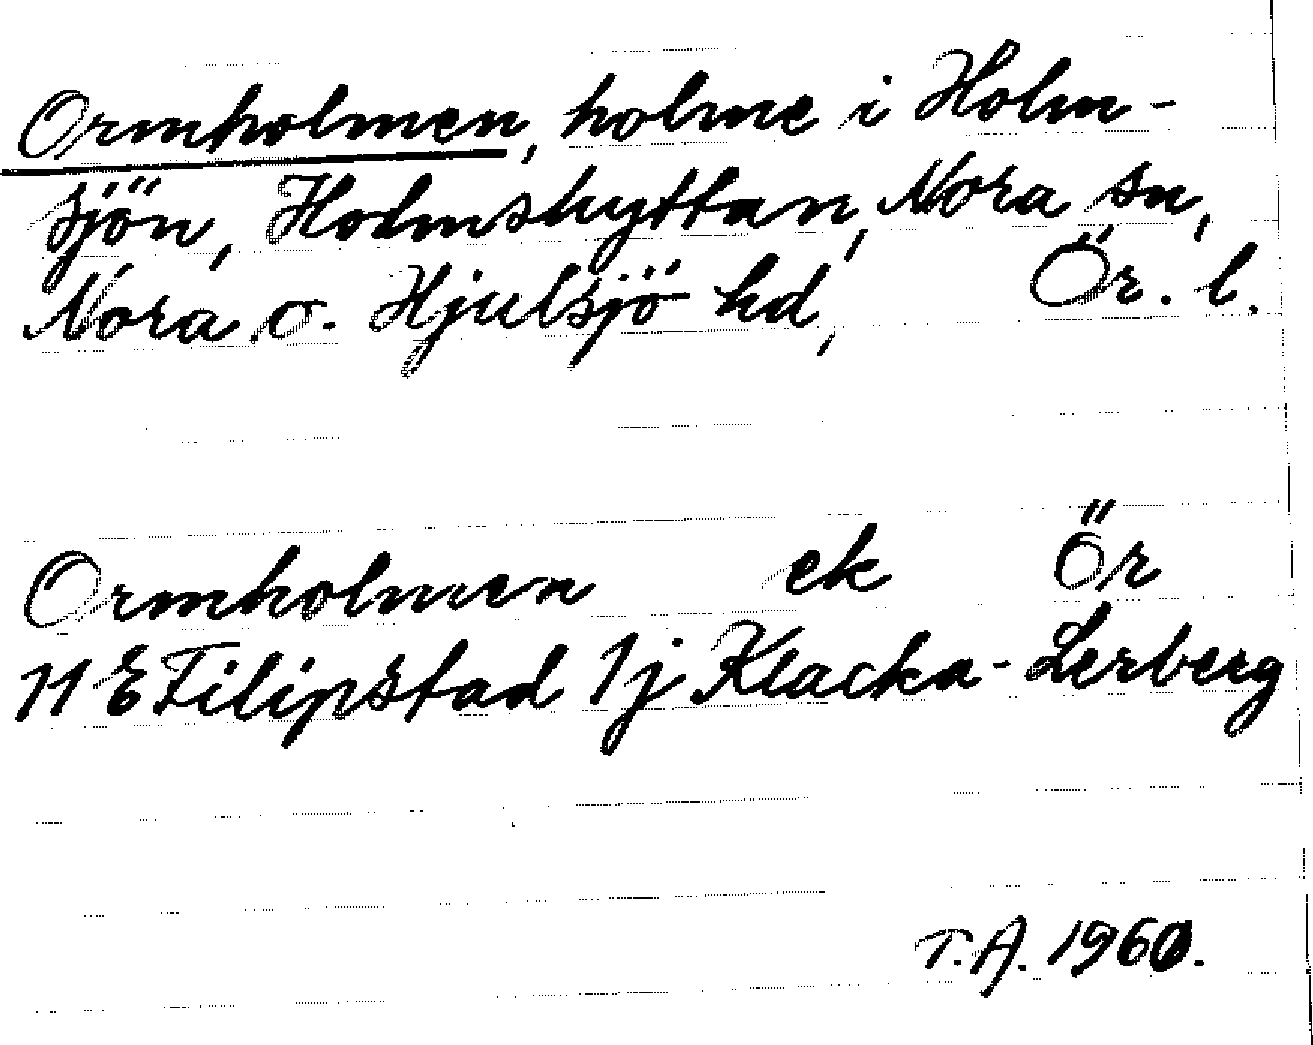 Ormholmen, holme i Holm-
sjön, Holmshyttan, Nora sn,
Nora o. Hjulsjö hd, Ör. l.
Ormholmen ek Ör
11 E Filipstad 1j Klacka-Lerberg
T.A. 1960.